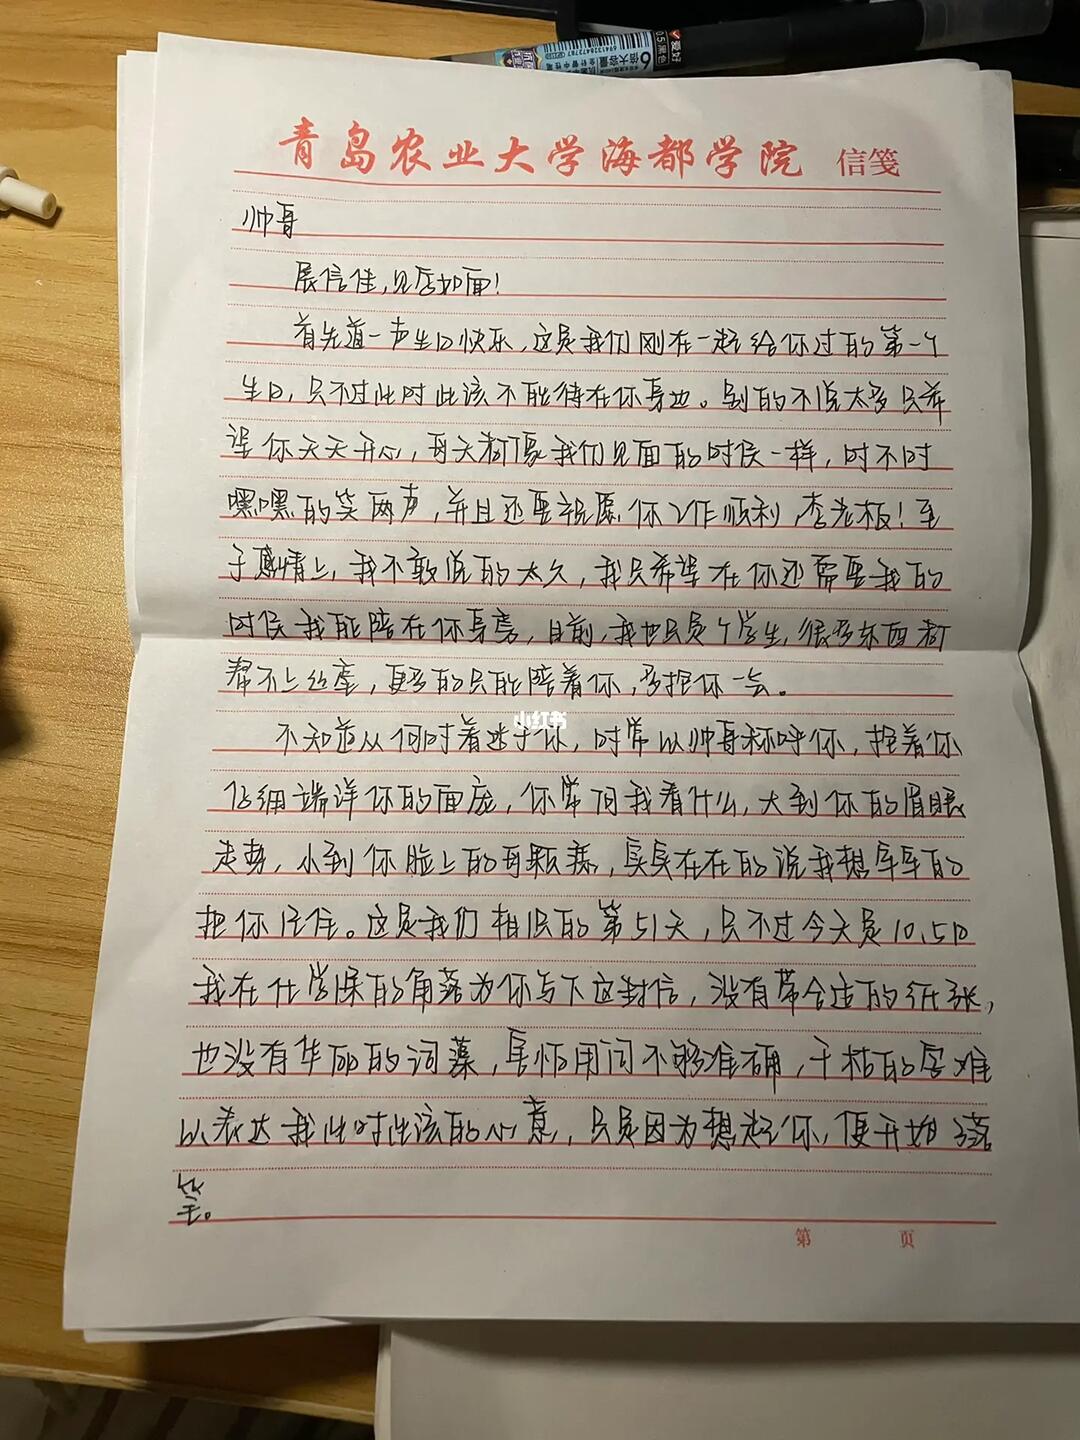 6倍大容量
爱好
0.5黑色
青岛农业大学海都学院 信笺
帅哥
展信佳,见字如面!
首先道一声生日快乐,这是我们刚在一起给你过的第一个
生日,只不过此时此该不能待在你身边。别的不说太多只希
望你天天开心,每天都像我们见面的时候一样,时不时
嘿嘿的笑两声,并且还要祝愿你工作顺利,李老板!至
于感情上,我不敢说的太久,我只希望在你还需要我的
时候我能陪在你身旁,目前,我也只是个学生,很多东西都
帮不上这座,更多的只能陪着你,多抱你一会。
小红书
不知道从何时着迷于你,时常以帅哥称呼你,抱着你
仔细端详你的面庞,你常问我看什么,大到你的眉眼
走势,小到你脸上的每颗痣,实实在在的说我想牢牢的
把你记住。这是我们相识的第51天,只不过今天是10.5日
我在化学课的角落为你写下这封信,没有带合适的纸张,
也没有华丽的词藻,害怕用词不够准确,干枯的字难
以表达我此时此该的心意,只是因为想起你,便开始落
笔。
第 页